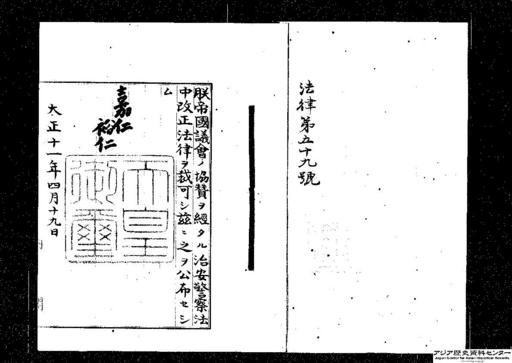 法律第五十九號
朕帝國議會ノ協贊ヲ經タル治安警察法
中改正法律ヲ裁可シ茲ニ之ヲ公布セシ
ム
嘉仁
裕仁
天皇御璽
大正十一年四月十九日
アジア歴史資料センター
Japan Center for Asian Historical Records